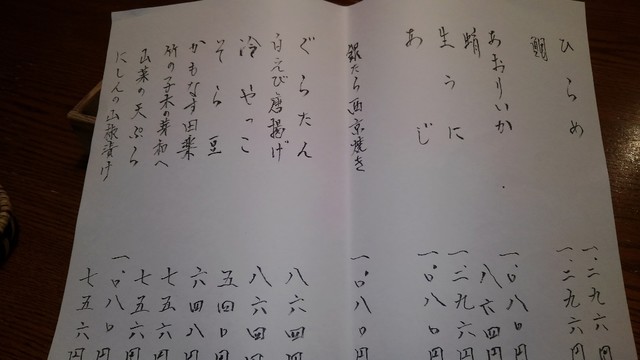 ひらめ 一.二九六円
鯛 一.二九六円
あおりいか 一.〇八〇円
蛸 八六四円
生うに 一.二九六円
あじ 一.〇八〇円
銀だら西京焼き 一.〇八〇円
ぐらたん 八六四
白えび唐揚げ 八六四
冷やっこ 五四〇
そら豆 六四八
かもなす田楽 七五六
竹の子木の芽和へ 七五六
山菜の天ぷら 一.〇八〇
にしんの山椒漬け 七五六円